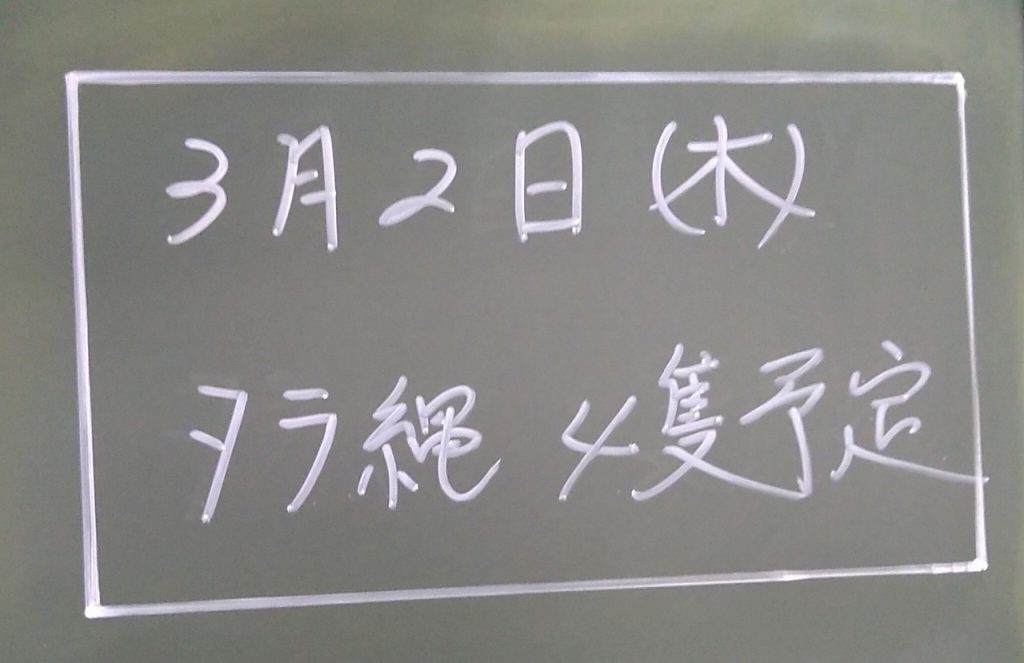 3月2日(木)
タラ縄 4隻予定